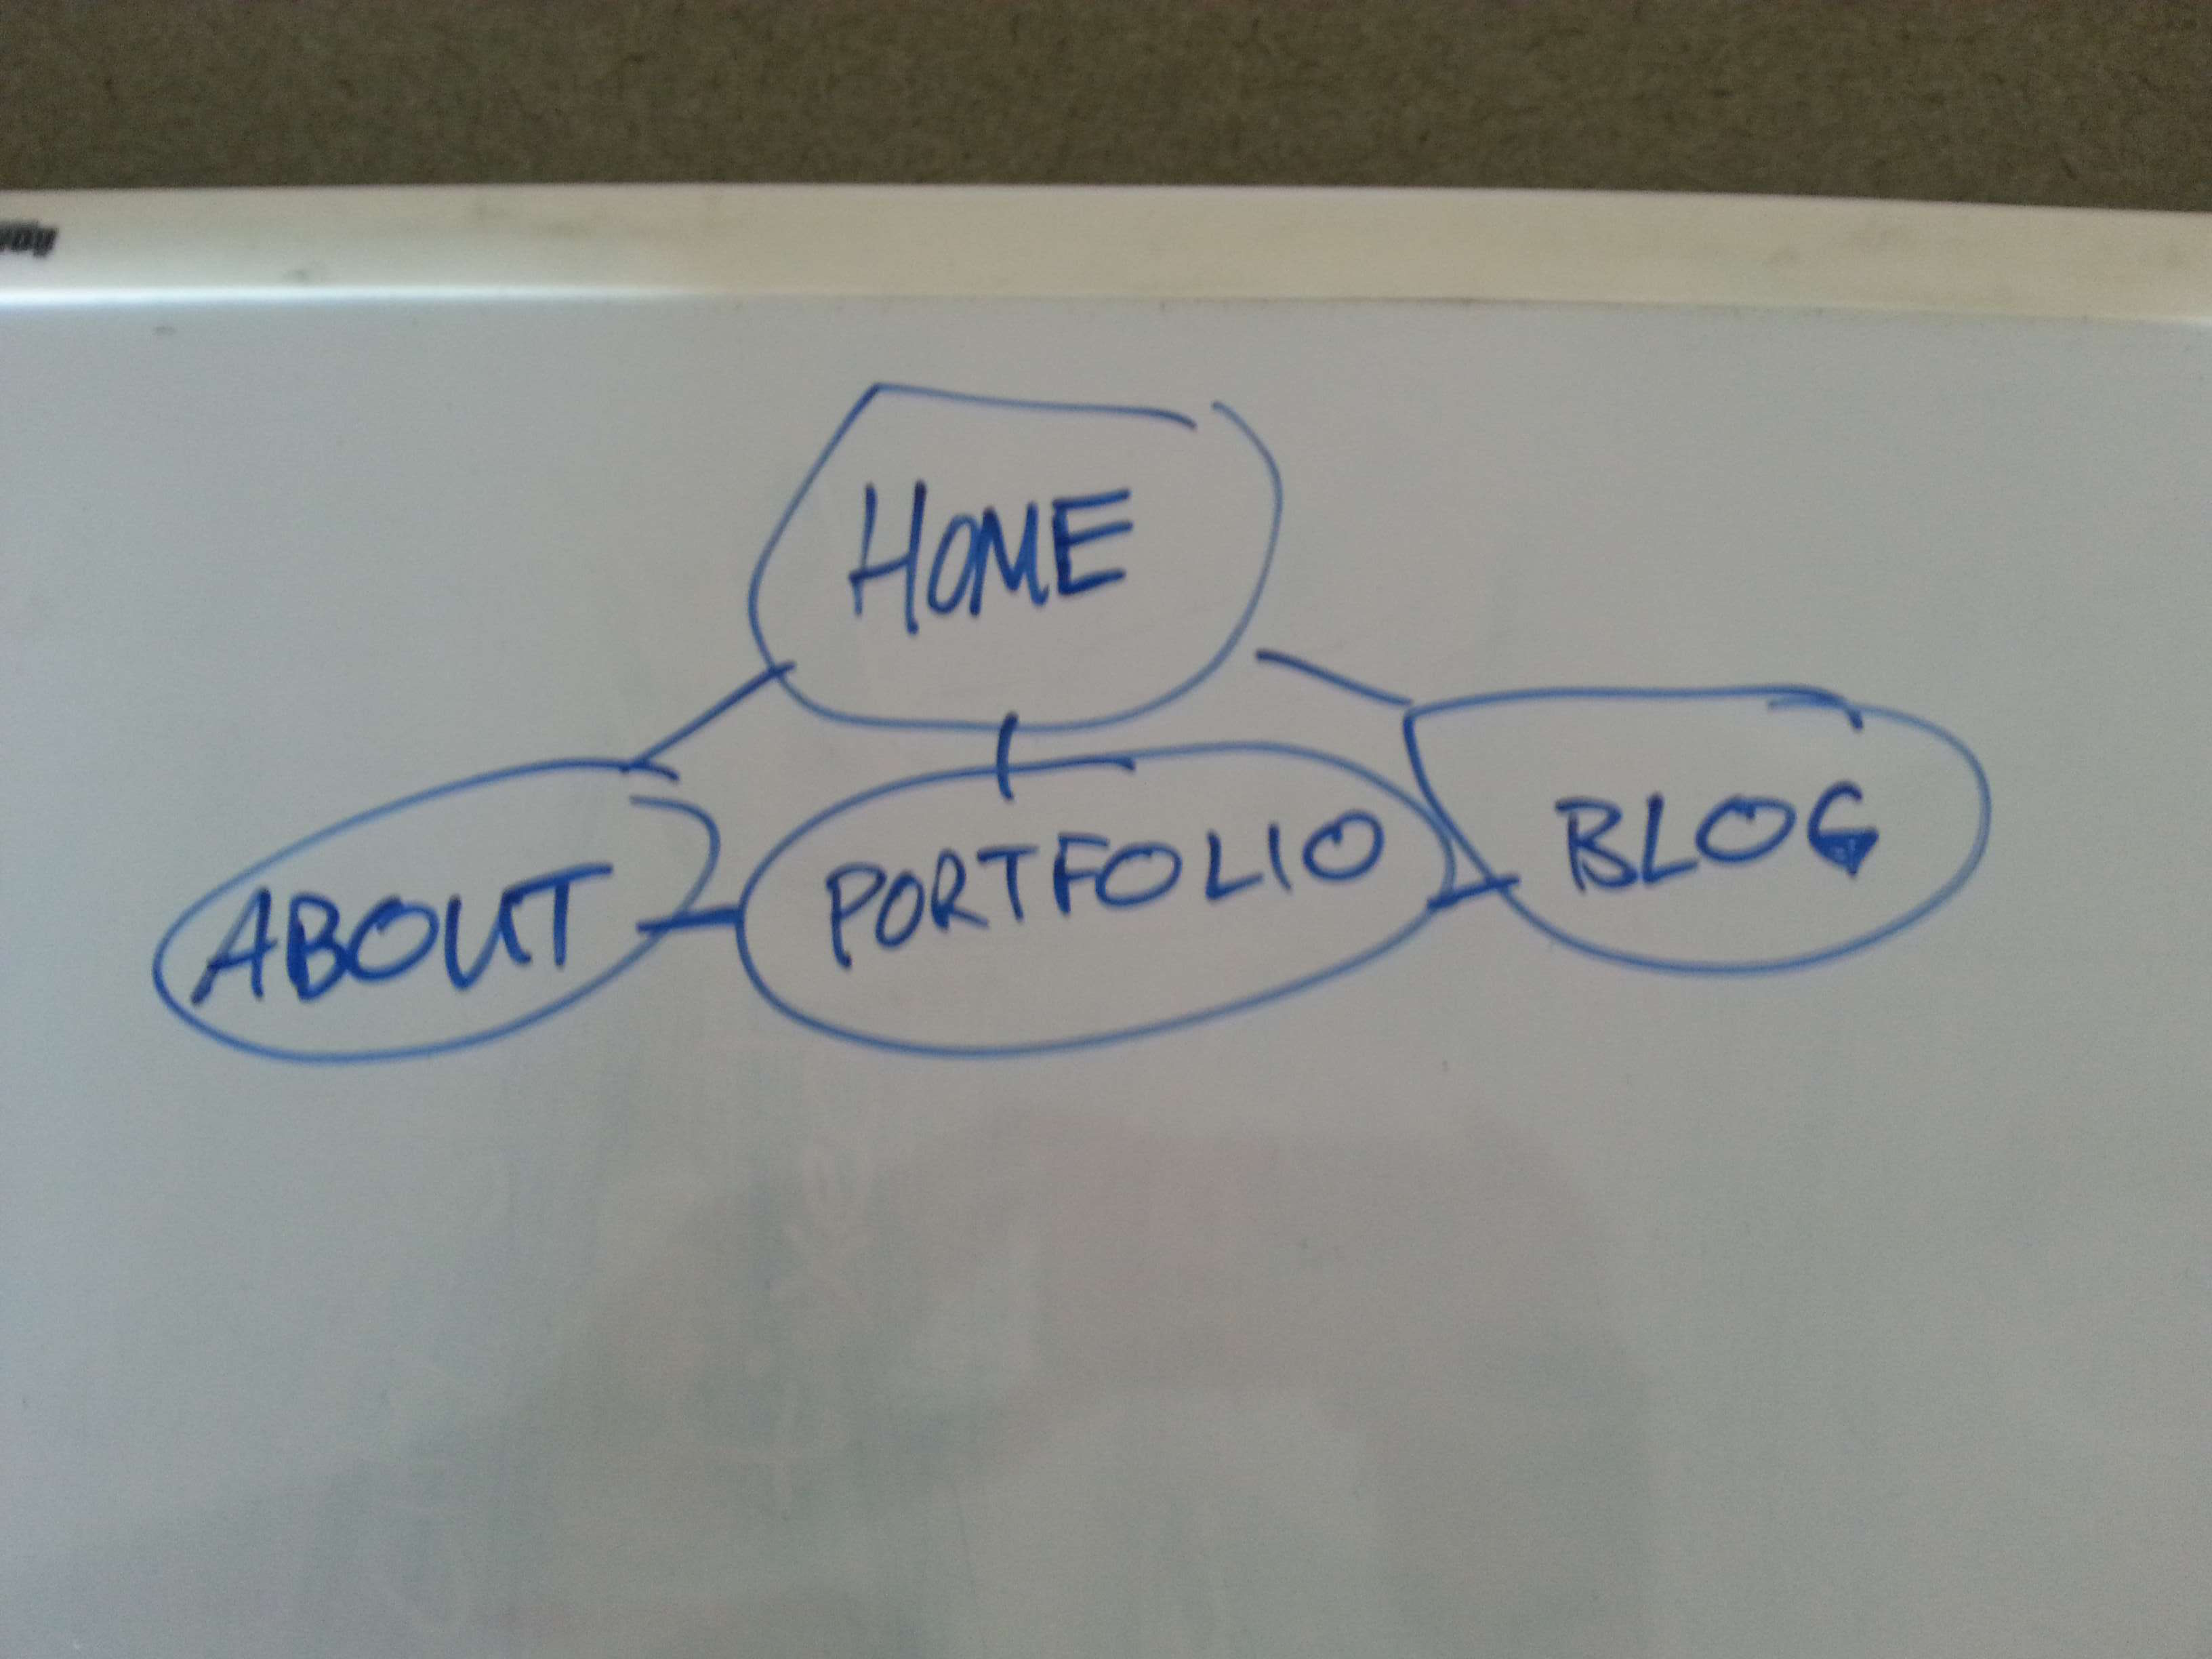 HOME
ABOUT PORTFOLIO BLOG